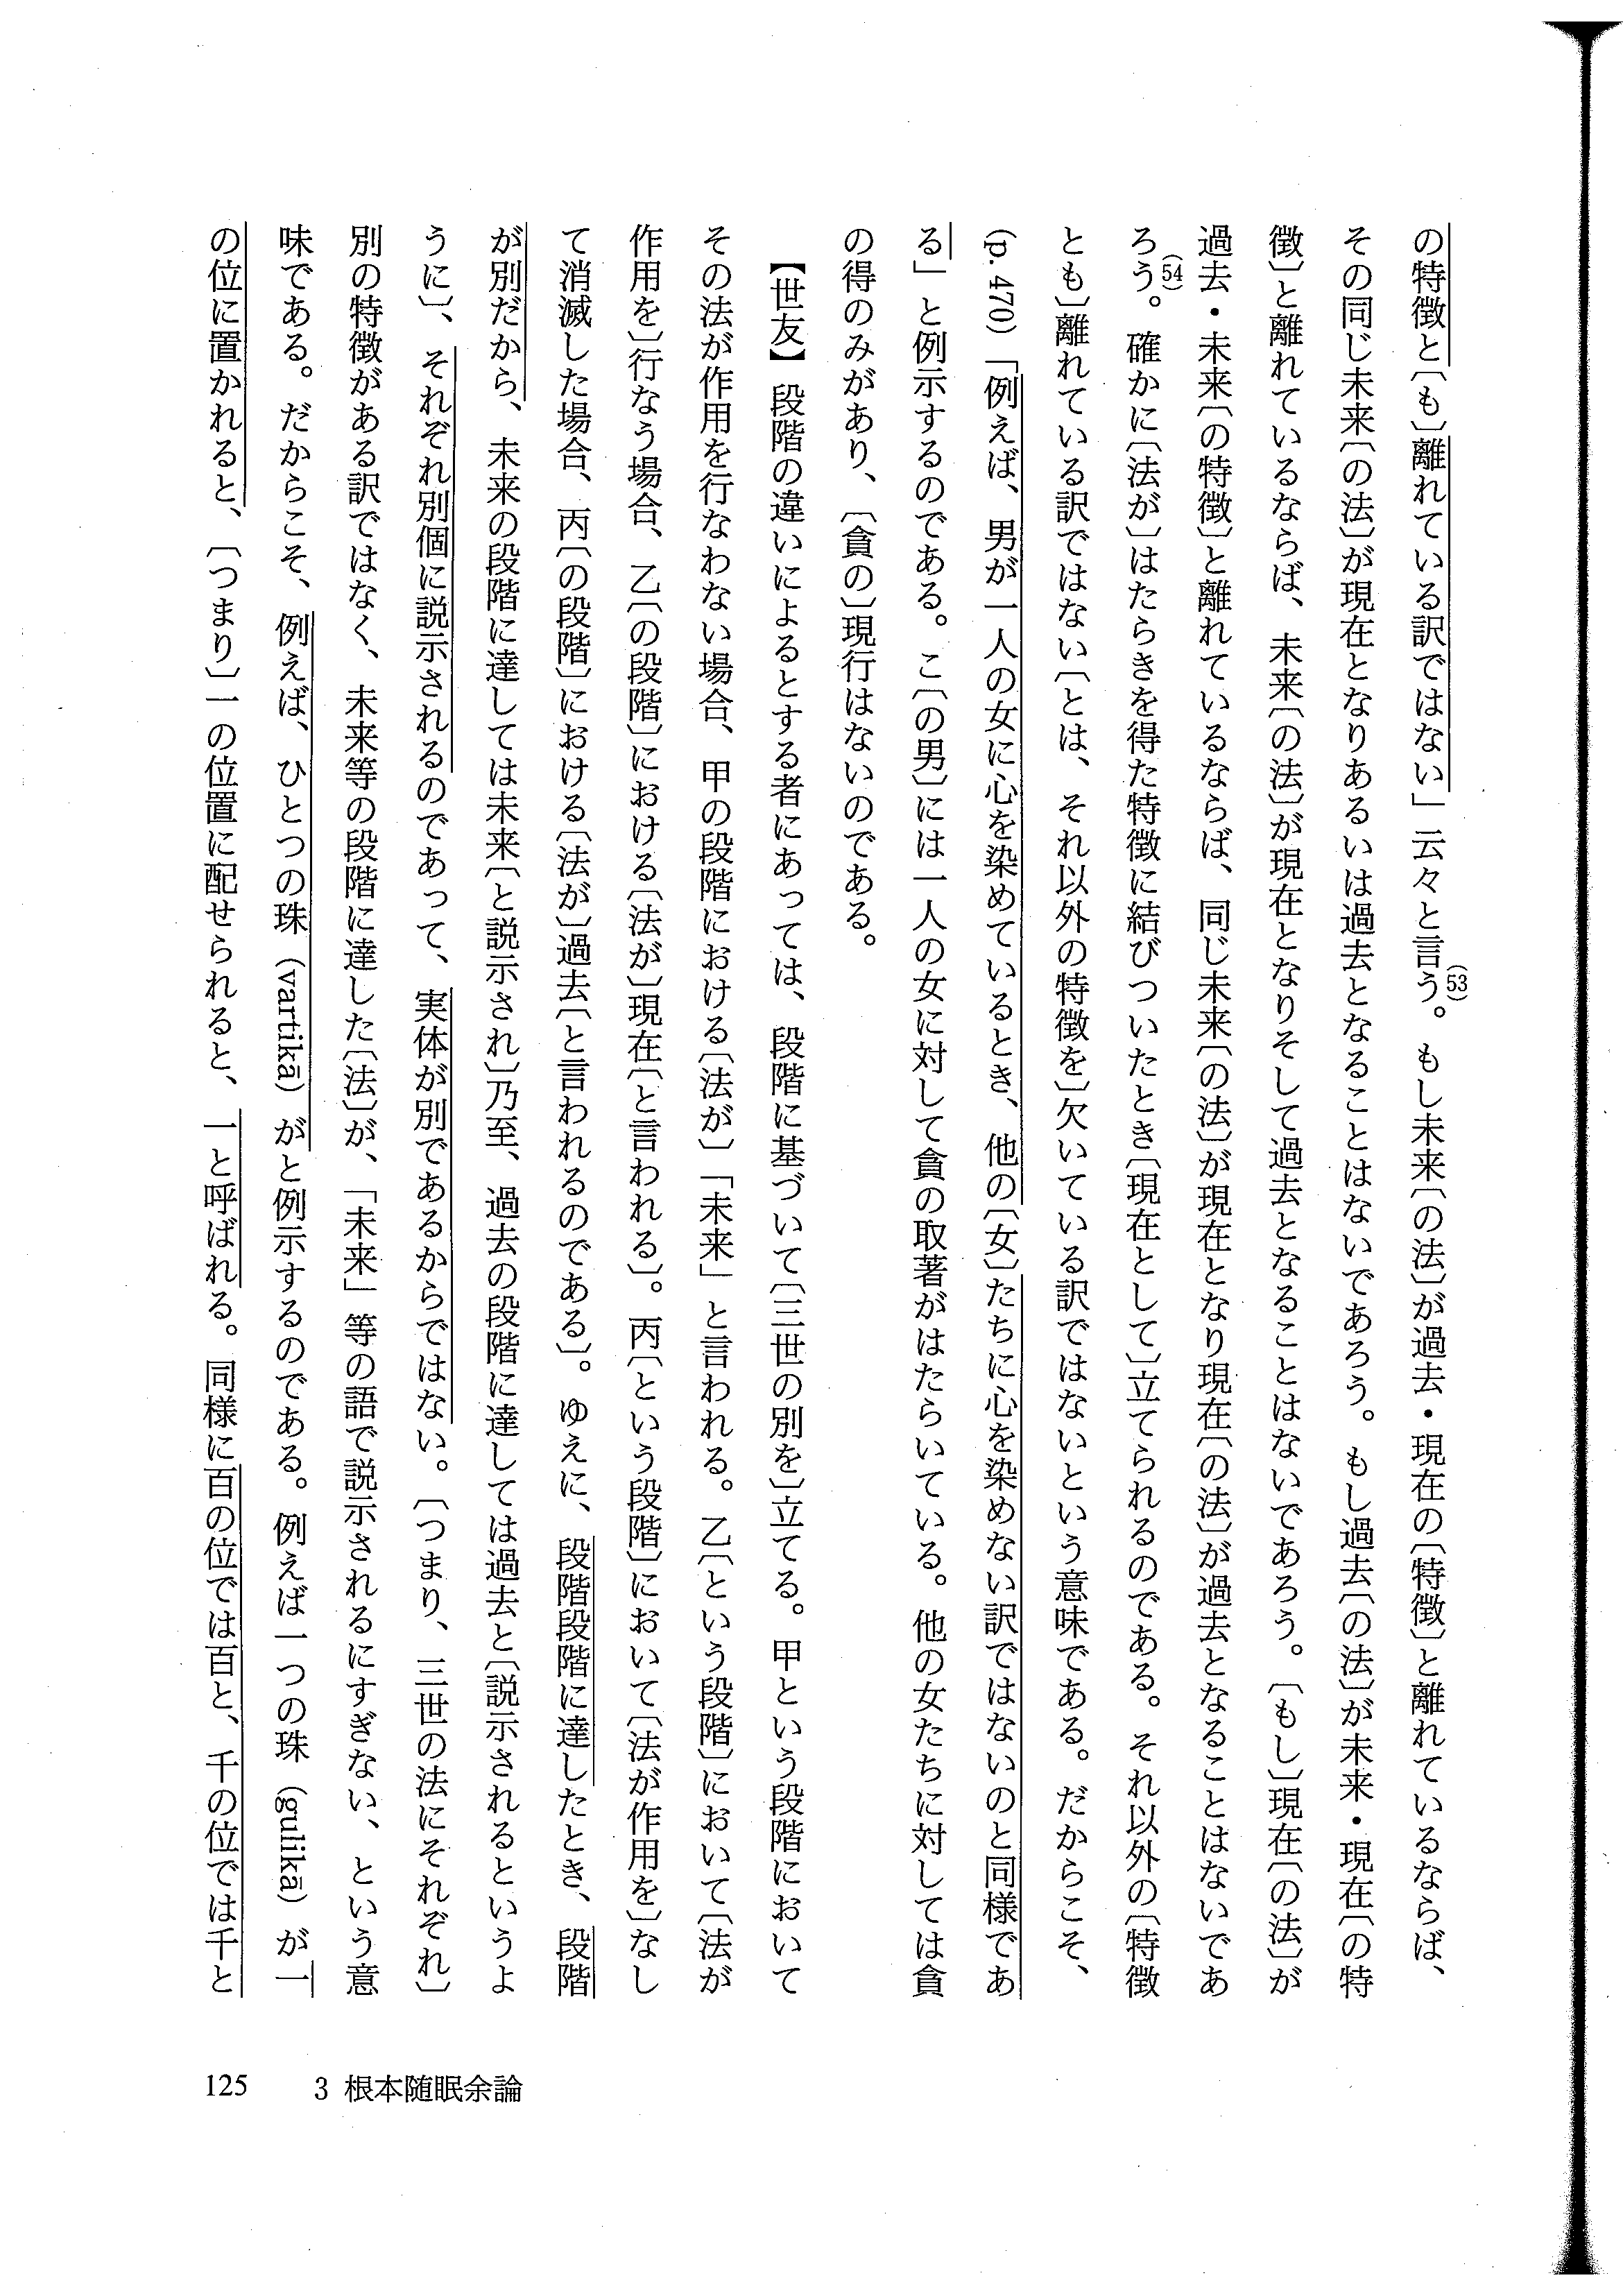 の特徴と〔も〕離れている訳ではない」云々と言う(53)。もし未来〔の法〕が過去・現在の〔特徴〕と離れているならば、
その同じ未来〔の法〕が現在となりあるいは過去となることはないであろう。もし過去〔の法〕が未来・現在〔の特
徴〕と離れているならば、未来〔の法〕が現在となりそして過去となることはないであろう。〔もし〕現在〔の法〕が
過去・未来〔の特徴〕と離れているならば、同じ未来〔の法〕が現在となり現在〔の法〕が過去となることはないであ
ろう(54)。確かに〔法が〕はたらきを得た特徴に結びついたとき〔現在として〕立てられるのである。それ以外の〔特徴
とも〕離れている訳ではない〔とは、それ以外の特徴を〕欠いている訳ではないという意味である。だからこそ、
(p. 470)「例えば、男が一人の女に心を染めているとき、他の〔女〕たちに心を染めない訳ではないのと同様であ
る」と例示するのである。こ〔の男〕には一人の女に対して貪の取著がはたらいている。他の女たちに対しては貪
の得のみがあり、〔貪の〕現行はないのである。
【世友】段階の違いによるとする者にあっては、段階に基づいて〔三世の別を〕立てる。甲という段階において
その法が作用を行なわない場合、甲の段階における〔法が〕「未来」と言われる。乙〔という段階〕において〔法が
作用を〕行なう場合、乙〔の段階〕における〔法が〕現在〔と言われる〕。丙〔という段階〕において〔法が作用を〕なし
て消滅した場合、丙〔の段階〕における〔法が〕過去〔と言われるのである〕。ゆえに、段階段階に達したとき、段階
が別だから、未来の段階に達しては未来〔と説示され〕乃至、過去の段階に達しては過去と〔説示されるというよ
うに〕、それぞれ別個に説示されるのであって、実体が別であるからではない。〔つまり、三世の法にそれぞれ〕
別の特徴がある訳ではなく、未来等の段階に達した〔法〕が、「未来」等の語で説示されるにすぎない、という意
味である。だからこそ、例えば、ひとつの珠（vartikā）がと例示するのである。例えば一つの珠（gulikā）が一
の位に置かれると、〔つまり〕一の位置に配せられると、一と呼ばれる。同様に百の位では百と、千の位では千と
125 3 根本随眠余論